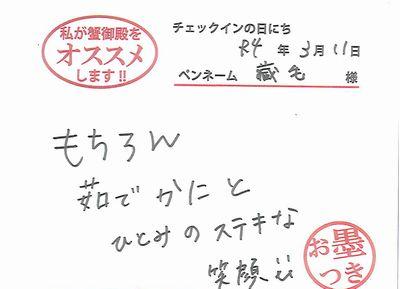 私が蟹御殿を
オススメ
します!!
チェックインの日にち
R4 年 3月 11日
ペンネーム 蔵毛 様
もちろん
茹でかにと
ひとみのステキな
笑顔
お墨
つき